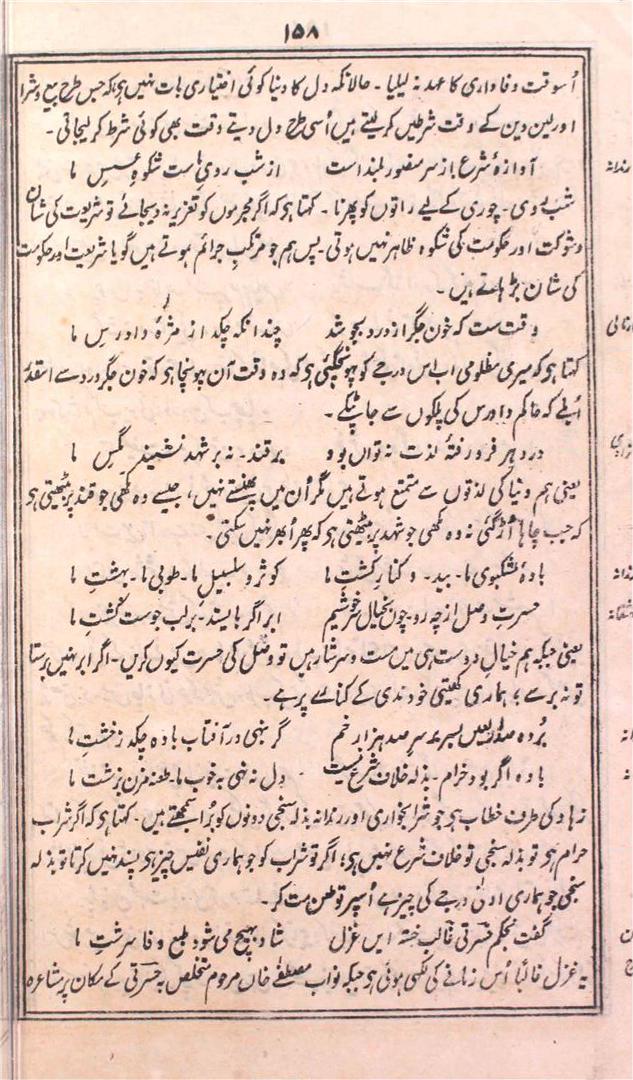 ۱۵۸
اُسوقت وفاداری کا عہد نہ لیلیا ۔ حالانکہ دل کا دینا کوئی اختیاری بات نہیں ہے کہ جس طرح بیع و شرا
اور لین دین کے وقت شرطیں کر لیتے ہیں اُسی طرح دل دیتے وقت بھی کوئی شرط کر لیجاتی ۔
رندانہ
آوازۂ شرع از سرِ منصور بلند است از شب رویِ ماست شکوہِ عسسِ ما
شب روی ۔ چوری کے لیے راتوں کو پھرنا ۔ کہتا ہو کہ اگر مجرموں کو تعزیر نہ دیجائے تو شریعت کی شان
وشوکت اور حکومت کی شکوہ ظاہر نہیں ہوتی ۔ پس ہم جو مرتکبِ جرائم ہوتے ہیں گویا شریعت اور حکومت
کی شان بڑھاتے ہیں ۔
وقت ست کہ خونِ جگر از درد بجوشد چندانکہ چکد از مژۂ دادرسِ ما
کہتا ہو کہ میری مظلومی اب اس درجے کو پہونچگئی ہو کہ وہ وقت آن پہونچا ہو کہ خونِ جگر درد سے اسقدر
اُبلے کہ حاکم دادرس کی پلکوں سے جا ٹپکے ۔
در دہر فرو رفتۂ لذت نہ تواں بود بر قند ۔ نہ بر شہد نشیند مگسِ ما
یعنی ہم دنیا کی لذتوں سے متمتع ہوتے ہیں مگر اُن میں پھنستے نہیں ، جیسے وہ مکھی جو قند پر بیٹھتی ہو
کہ جب چاہا اُڑ گئی نہ وہ مکھی جو شہد پر بیٹھتی ہو کہ پھر اُبھر نہیں سکتی ۔
بادۂ مشکبوی ما ۔ بید ۔ و کنارِ کشتِ ما کوثر و سلسبیلِ ما ۔ طوبیِ ما ۔ بہشتِ ما
حسرتِ وصل از چہ رو ۔ چون بخیال سرخوشیم ابر اگر بایستد ۔ بر لب جوست کشتِ ما
یعنی جبکہ ہم خیالِ دوست ہی میں مست و سرشار ہیں تو وصل کی حسرت کیوں کریں ۔ اگر ابر نہیں برستا
تو نہ برسے ؛ ہماری کھیتی خود ندی کے کنارے پر ہے ۔
صد ہزار خم گر بنہی در آفتاب بادہ چکد ز خشتِ ما
بادہ اگر بود حرام ۔ بذلہ خلاف شرع نیست دل نہ نہی بہ خوبِ ما ۔ طعنہ مزن بزشتِ ما
زہاد کی طرف خطاب ہو جو شرابخواری اور رندانہ بذلہ سنجی دونوں کو بُرا سمجھتے ہیں ۔ کہتا ہو کہ اگر شراب
حرام ہو تو بذلہ سنجی تو خلاف شرع نہیں ہو ؛ اگر تو شراب کو جو ہماری نفیس چیز ہو پسند نہیں کرتا تو بذلہ
سنجی جو ہماری ادنیٰ درجے کی چیز ہے اُسپر تو طعن مت کر ۔
گفت بحکم حسرتی غالبِ خستہ ایں غزل شاد بہیچ می شود طبعِ وفا سرشتِ ما
یہ غزل غالباً اُس زمانے کی لکھی ہوئی ہو جبکہ نواب مصطفےٰ خاں مرحوم متخلص بہ حسرتی کے مکان پر مشاعرہ